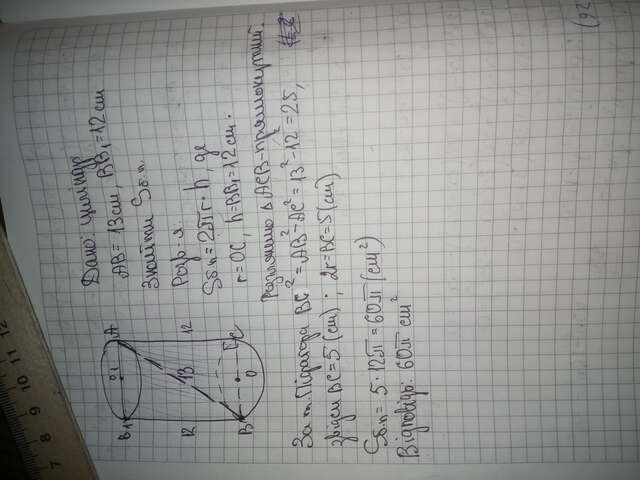 Дано: циліндр
AB = 13 см, BB₁ = 12 см
Знайти Sб.п.
Розв-я.
Sб.п = 2πr · h, де
r = OC, h = BB₁ = 12 см.
Розглянемо Δ ACB - прямокутний.
За т. Піфагора BC² = AB² - AC² = 13² - 12² = 25,
звідси BC = 5 (см) ; 2r = BC = 5 (см)
Sб.п = 5 · 12π = 60π (см²)
Відповідь: 60π см²
B₁
O₁
A
12
13
12
B
O
C
(92
7 8 9 10 11 12